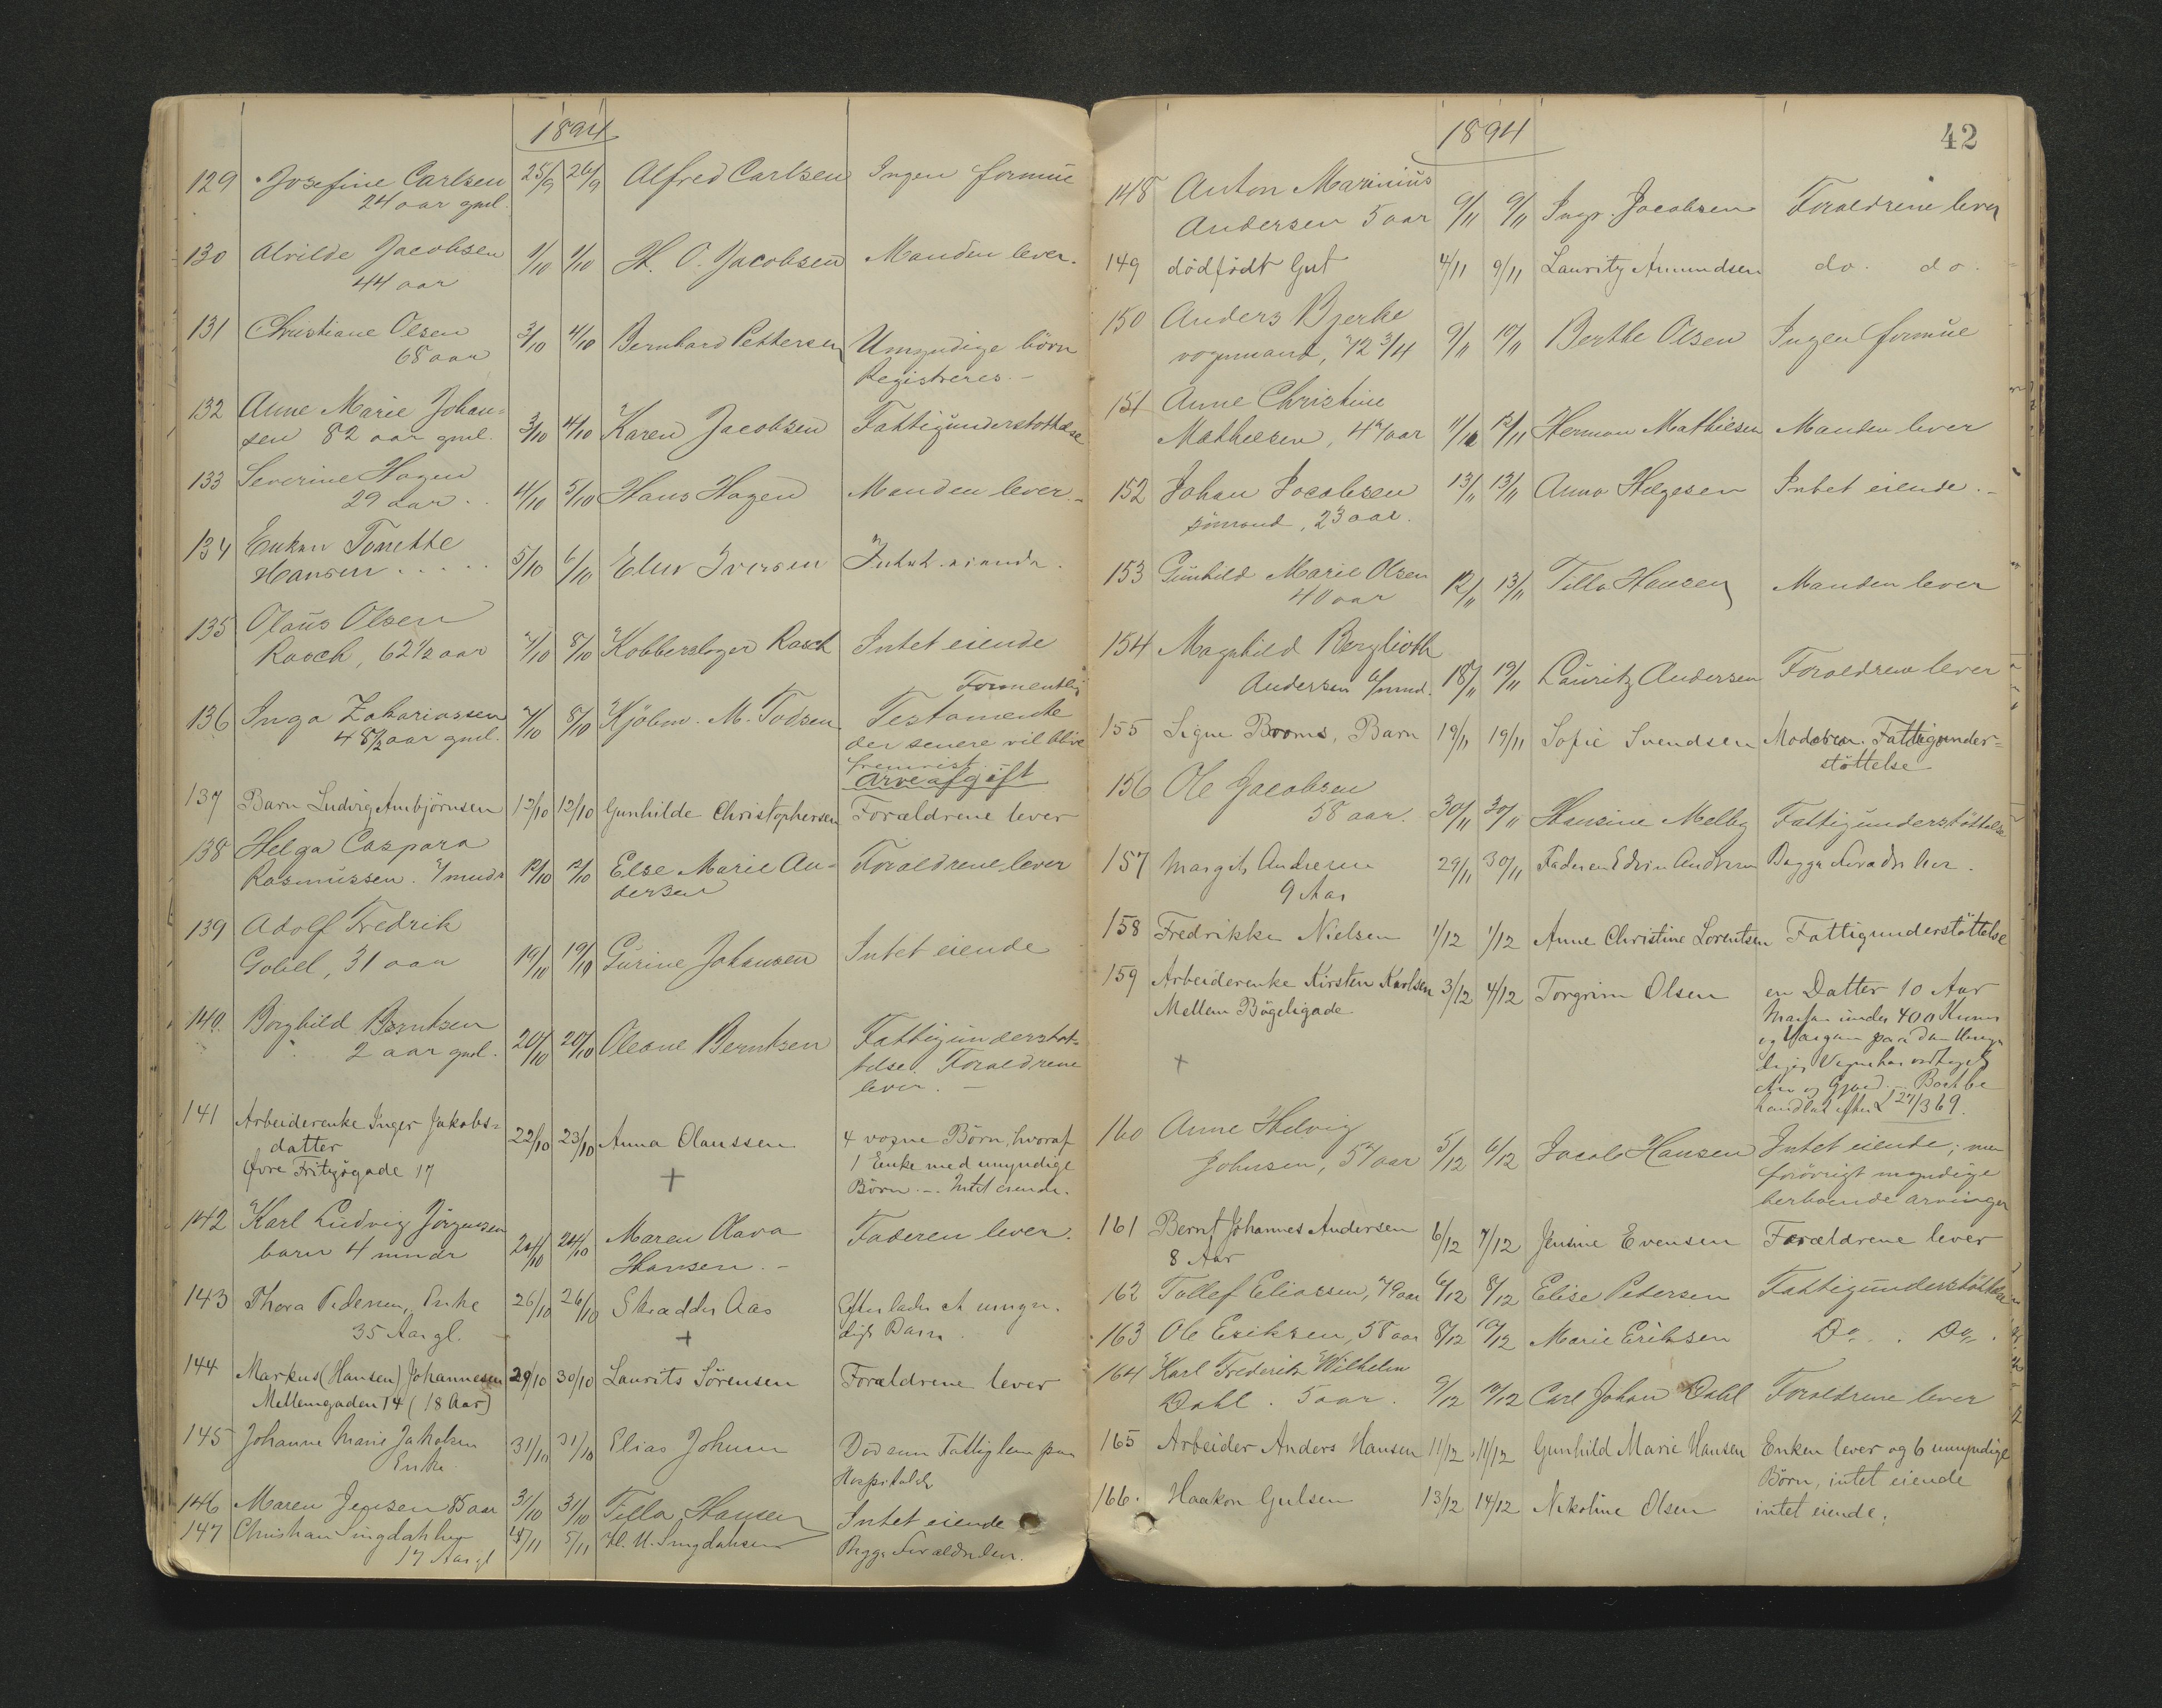 1894
129 Josefine Carlsen 25/9 26/9 Alfred Carlsen Ingen formue
24 aar gml.
130 Alvilde Jacobsen 1/10 1/10 H. O. Jacobsen Manden lever.
44 aar
131 Christiane Olsen 3/10 4/10 Bernhard Pettersen Umyndige börn
68 aar Registreres. –
132 Anne Marie Johan-
sen 82 aar gml. 3/10 4/10 Karen Jacobsen Fattigunderstöttelse
133 Severine Hagen
29 aar. 4/10 5/10 Hans Hagen Manden lever. –
134 Enken Tomette
Hansen . . . . . 5/10 6/10 Iversen Intet eiende.
135 Olaus Olsen
Rasch, 62 1/2 aar 7/10 8/10 Kobberslager Rasch Intet eiende
136 Inga Zakariassen 7/10 8/10 Kjöbm. M. Todsen Formentlig
48 1/2 aar gml. Testamente
der senere vil blive
fremvist. –
Arveafgift
137 Barn Ludvig Ambjörnsen 12/10 12/10 Gunhilde Christophersen Forældrene lever
138 Helga Caspara
Rasmussen. mndr 12/10 12/10 Else Marie An- Forældrene lever
dersen
139 Adolf Fredrik
Gobel, 31 aar 19/10 19/10 Gurine Johansen Intet eiende
140. Borghild Berntsen
2 aar gml. 20/10 20/10 Oleane Berntsen Fattigunderstöt-
telse. Forældrene
lever. –
141 Arbeiderenke Inger Jakobs-
datter 22/10 23/10 Anna Olaussen 4 voxne Börn, hvoraf
Øvre Fritzögade 17 + 1 Enke med umyndige
Börn. – Intet eiende.
142 Karl Ludvig Jörgensen
barn 4 mndr 24/10 24/10 Maren Olava Faderen lever.
Hansen. –
143 Thora Pedersen, Enke 26/10 26/10 Skrædder Aas Efterlader et umyn-
35 Aar gl. + digt Barn.
144 Markus (Hansen) Johannesen 29/10 30/10 Laurits Sörensen Forældrene lever
Mellemgaden 14 (18 Aar)
145 Johanne Marie Jakobsen 31/10 31/10 Elias Johnsen Död som Fattiglem paa
Enke Hospitalet
146 Maren Jensen 85 aar 31/10 31/10 Tilla Hansen Intet eiende
147 Christian Lingdahlsen 4/11 5/11 H. U. Lingdahlsen Begge Forældre lever.
17 Aar gl
1894
42
148 Anton Marinius
Andersen 5 aar 9/11 9/11 Ingr. Jacobsen Forældrene lever
149 dödfödt Gut 4/11 9/11 Lauritz Amundsen do. do.
150 Anders Bjerke
vognmand, 72 3/4 9/11 10/11 Berthe Olsen Ingen formue
151 Anne Christine
Mathiesen, 47 aar 11/11 12/11 Herman Mathiesen Manden lever
152 Johan Jacobsen 13/11 13/11 Anna Helgesen Intet eiende. –
sömand, 23 aar.
153 Gunhild Marie Olsen 12/11 13/11 Tilla Hansen Manden lever
40 aar
154 Magnhild Berglioth
Andersen 6 mnd. 18/11 19/11 Lauritz Andersen Forældrene lever
155 Signe Brooms, Barn 19/11 19/11 Sofie Svendsen Moderen Fattigunder-
stöttelse
156 Ole Jacobsen
58 aar. 30/11 30/11 Hansine Melby Fattigunderstöttelse
157 Margit Andersen 29/11 30/11 Faderen Edvin Andersen Begge Forældre lever.
9 Aar
158 Fredrikke Nielsen 1/12 1/12 Anne Christine Lorentsen Fattigunderstöttelse
159 Arbeiderenke Kirsten Karlsen 3/12 4/12 Torgrim Olsen en Datter 10 Aar
Mellem Bögeligade Massen under 400 Kroner
+ og Værgen paa den Umyn-
diges Vegne har vedtaget
Arv og Gjæld. – Boet be-
handlet efter L 27/3 69.
160 Anne Helvig
Johnsen, 57 aar 5/12 6/12 Jacob Hansen Intet eiende; men
forövrigt myndige
herboende arvinger
161 Bernt Johannes Andersen 6/12 7/12 Jensine Evensen Forældrene lever
8 Aar
162 Tollef Eliassen, 79 aar 6/12 8/12 Elise Petersen Fattigunderstöttelse
163 Ole Eriksen, 58 aar 8/12 10/12 Marie Eriksen Do. . Do. .
164 Karl Frederik Wilhelm
Dahl. 5 aar. 9/12 10/12 Carl Johan Dahl Forældrene lever
165 Arbeider Anders Hansen 11/12 11/12 Gunhild Marie Hansen Enken lever og 6 umyndige
Börn, intet eiende
166. Haakon Gulsen 13/12 14/12 Nikoline Olsen intet eiende.